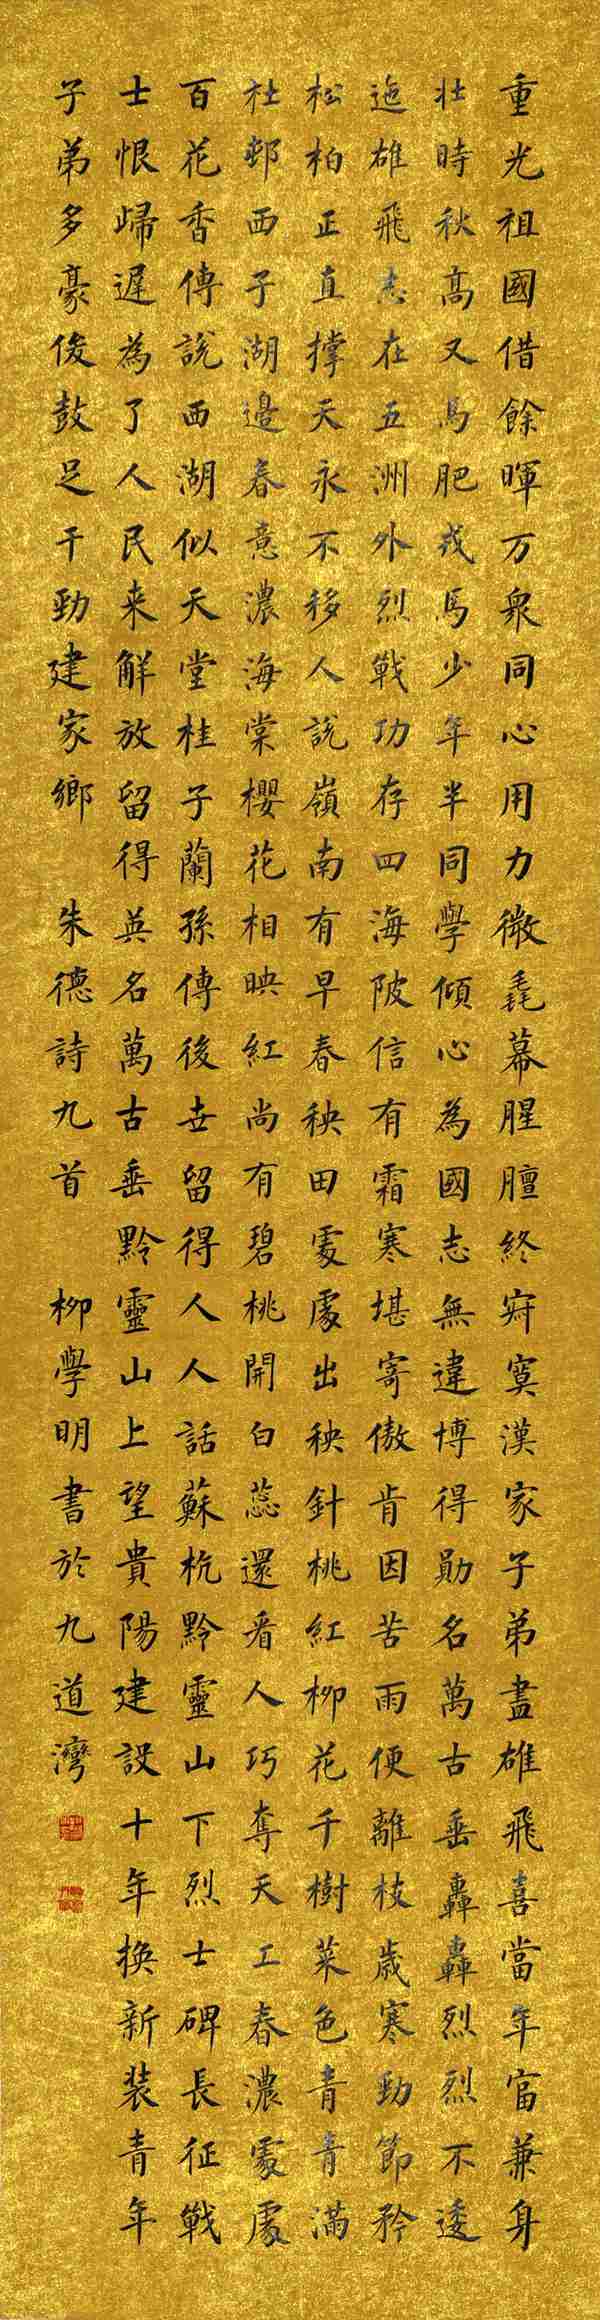 重光祖國借餘暉万衆同心用力微毳幕腥膻終寂寞漢家子弟盡雄飛喜當年富兼身
壯時秋高又馬肥戎馬少年半同學傾心為國志無違博得勛名萬古垂轟轟烈烈不逶
迤雄飛志在五洲外烈戰功存四海陂信有霜寒堪寄傲肯因苦雨便離枝歲寒勁節矜
松柏正直撑天永不移人說嶺南有早春秧田處處出秧針桃紅柳花千樹菜色青青滿
杜邨西子湖邊春意濃海棠櫻花相映紅尚有碧桃開白蕊還看人巧奪天工春濃處處
百花香傳說西湖似天堂桂子蘭孫傳後世留得人人話蘇杭黔靈山下烈士碑長征戰
士恨歸遲為了人民来解放留得英名萬古垂黔靈山上望貴陽建設十年换新装青年
子弟多豪俊鼓足干勁建家鄉 朱德詩九首 柳學明書於九道灣